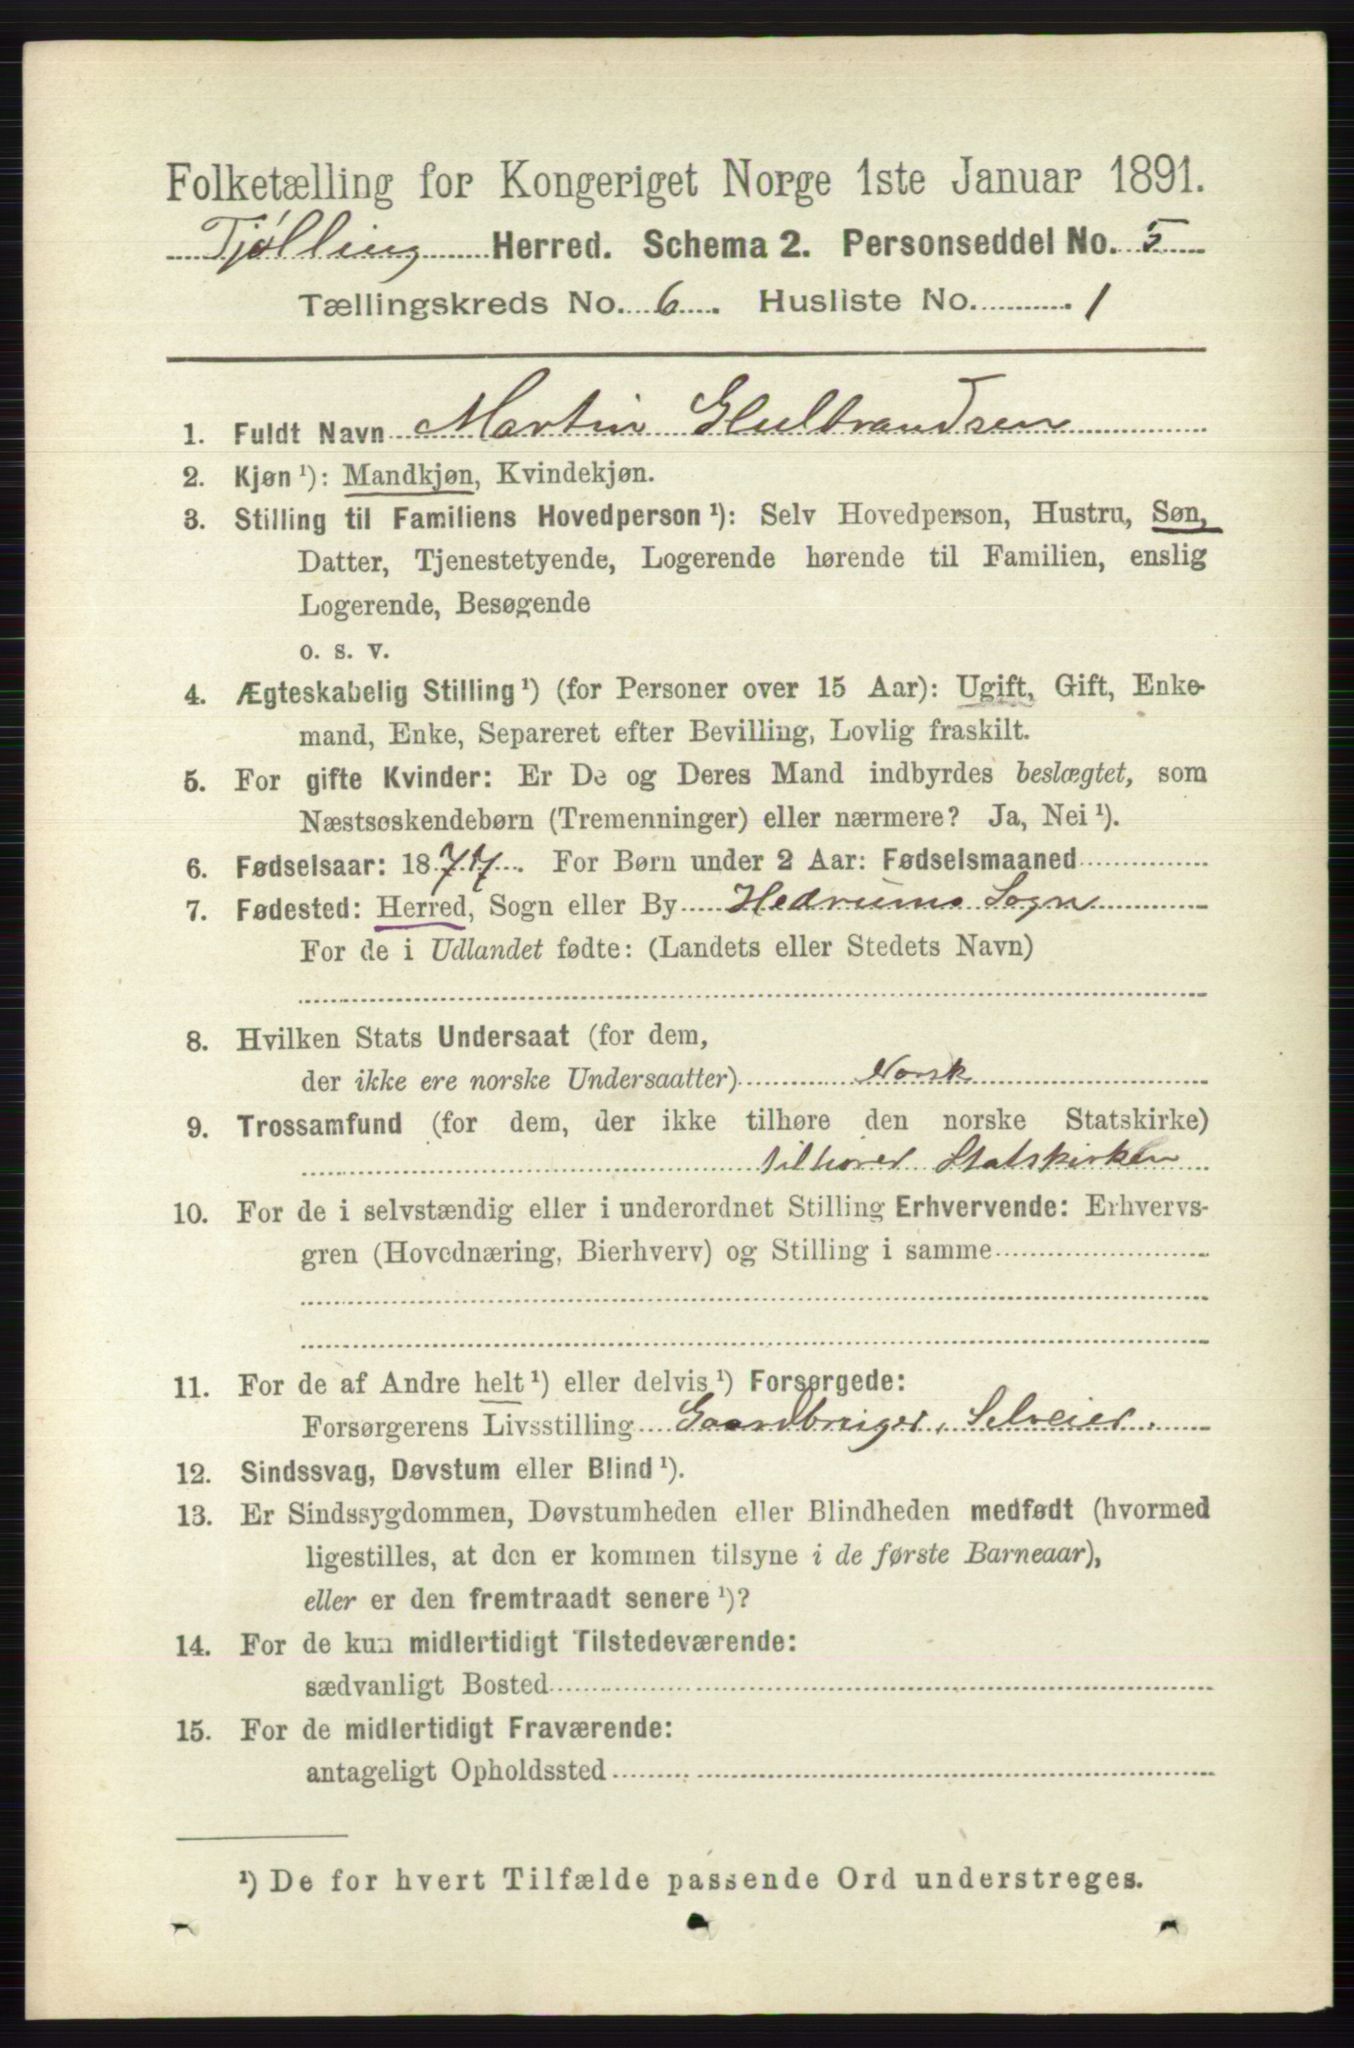 Folketælling for Kongeriget Norge 1ste Januar 1891.
Tjølling Herred. Schema 2. Personseddel No. 5
Tællingskreds No. 6. Husliste No. 1
1. Fuldt Navn Martin Gulbrandsen
2. Kjøn ¹): Mandkjøn, Kvindekjøn.
3. Stilling til Familiens Hovedperson ¹): Selv Hovedperson, Hustru, Søn,
Datter, Tjenestetyende, Logerende hørende til Familien, enslig
Logerende, Besøgende
o. s. v.
4. Ægteskabelig Stilling ¹) (for Personer over 15 Aar): Ugift, Gift, Enke-
mand, Enke, Separeret efter Bevilling, Lovlig fraskilt.
5. For gifte Kvinder: Er De og Deres Mand indbyrdes beslægtet, som
Næstsøskendebørn (Tremenninger) eller nærmere? Ja, Nei ¹).
6. Fødselsaar: 1877. For Børn under 2 Aar: Fødselsmaaned
7. Fødested: Herred, Sogn eller By Hedrums Sogn
For de i Udlandet fødte: (Landets eller Stedets Navn)
8. Hvilken Stats Undersaat (for dem,
der ikke ere norske Undersaatter) Norsk
9. Trossamfund (for dem, der ikke tilhøre den norske Statskirke)
tilhører Statskirken
10. For de i selvstændig eller i underordnet Stilling Erhvervende: Erhvervs-
gren (Hovednæring, Bierhverv) og Stilling i samme
11. For de af Andre helt ¹) eller delvis ¹) Forsørgede:
Forsørgerens Livsstilling Gaardbruger, Selveier.
12. Sindssvag, Døvstum eller Blind ¹).
13. Er Sindssygdommen, Døvstumheden eller Blindheden medfødt (hvormed
ligestilles, at den er kommen tilsyne i de første Barneaar),
eller er den fremtraadt senere ¹)?
14. For de kun midlertidigt Tilstedeværende:
sædvanligt Bosted
15. For de midlertidigt Fraværende:
antageligt Opholdssted
¹) De for hvert Tilfælde passende Ord understreges.